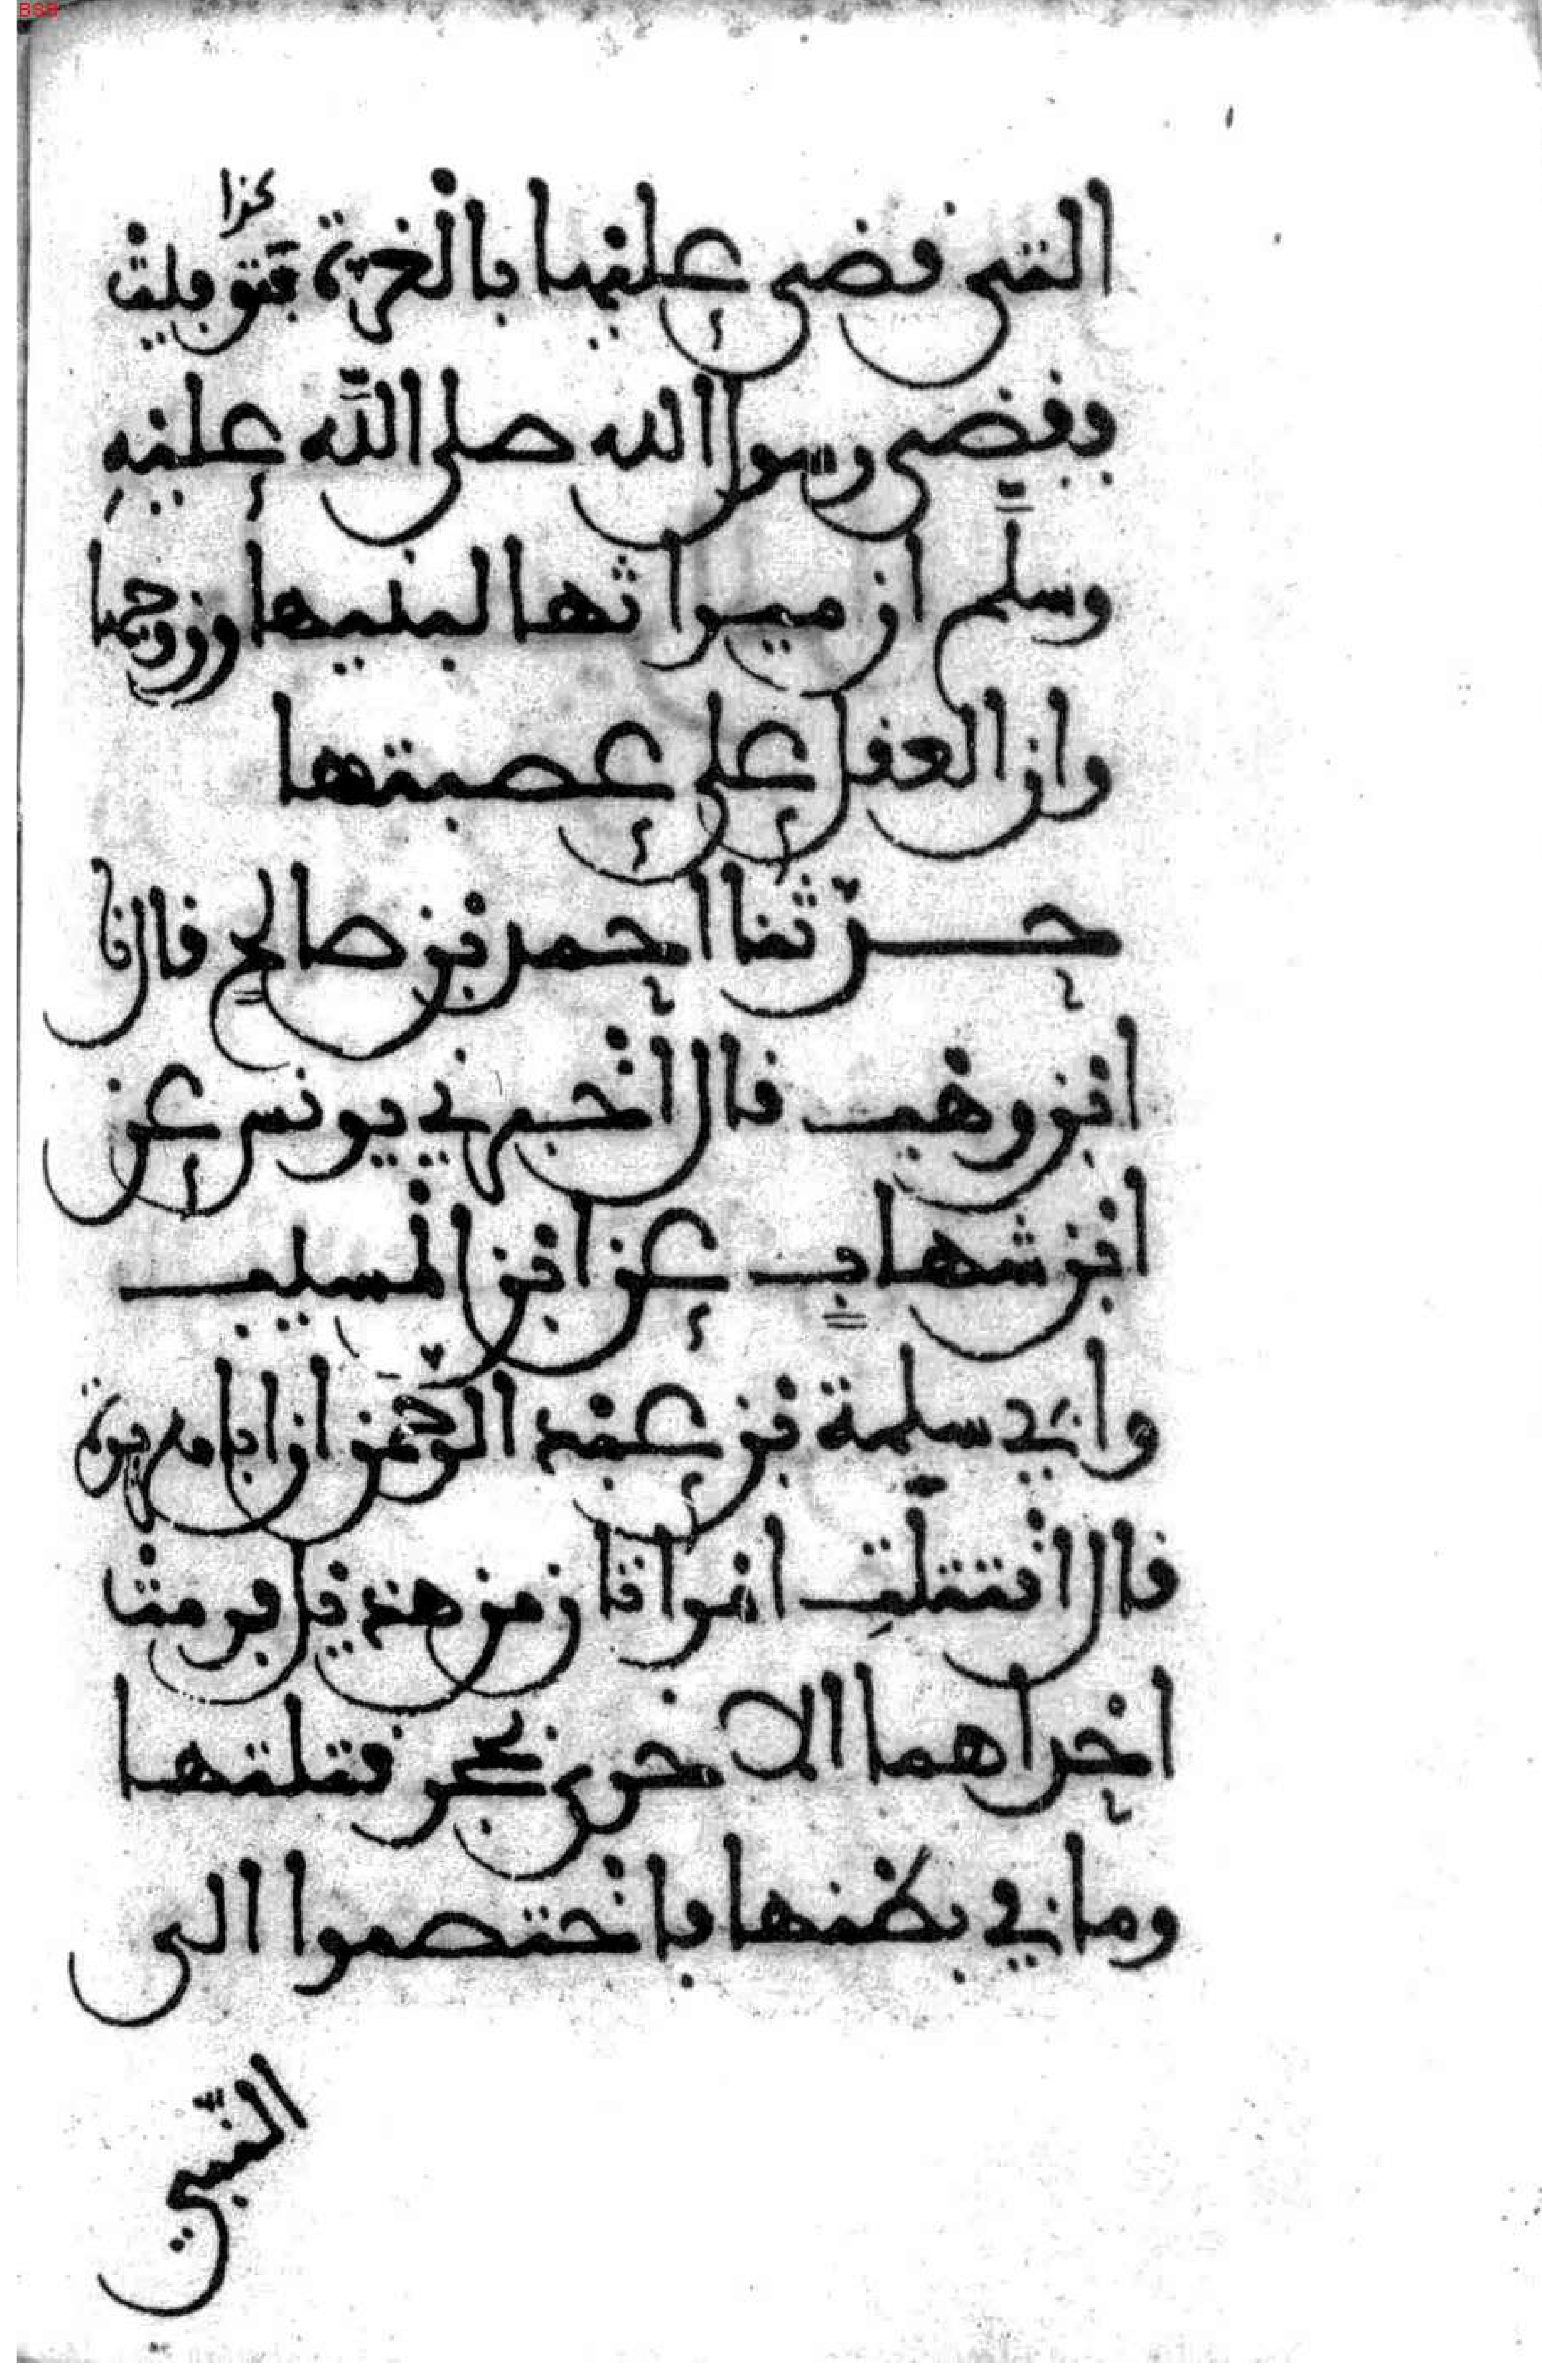 BSB
كذا
التى قضى عليها بالغرة فتوفيت
فقضى رسول الله صلى الله عليه
وسلم ان ميراثها لبنيها وزوجها
وان العقل على عصبتها
حدثنا احمد بن صالح قال نا
ابن وهب قال اخبرني يونس عن
ابن شهاب عن ابن المسيب
وابي سلمة بن عبد الرحمن ان ابا هريرة
قال اقتتلت امراتان من هذيل فرمت
احداهما الاخرى بحجر فقتلتها
وما في بطنها فاختصموا الى
النبي